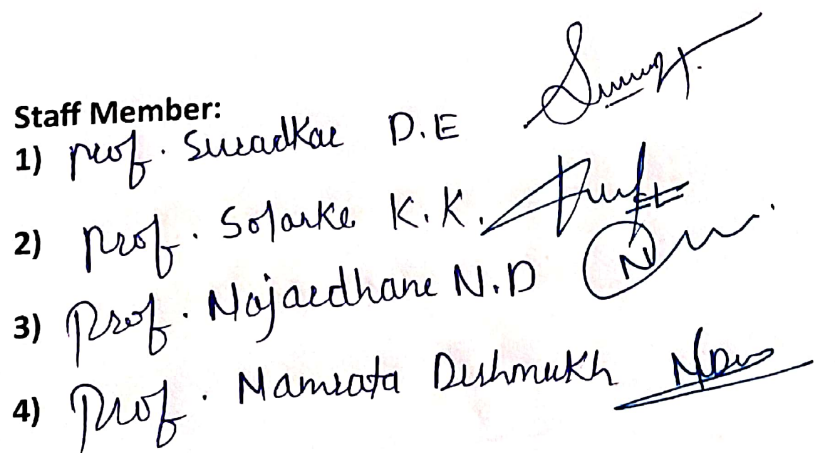 Staff Member:
1) Prof. Suradkar D.E
2) Prof. Solanke K.K.
3) Prof. Najardhane N.D
4) Prof. Namrata Deshmukh